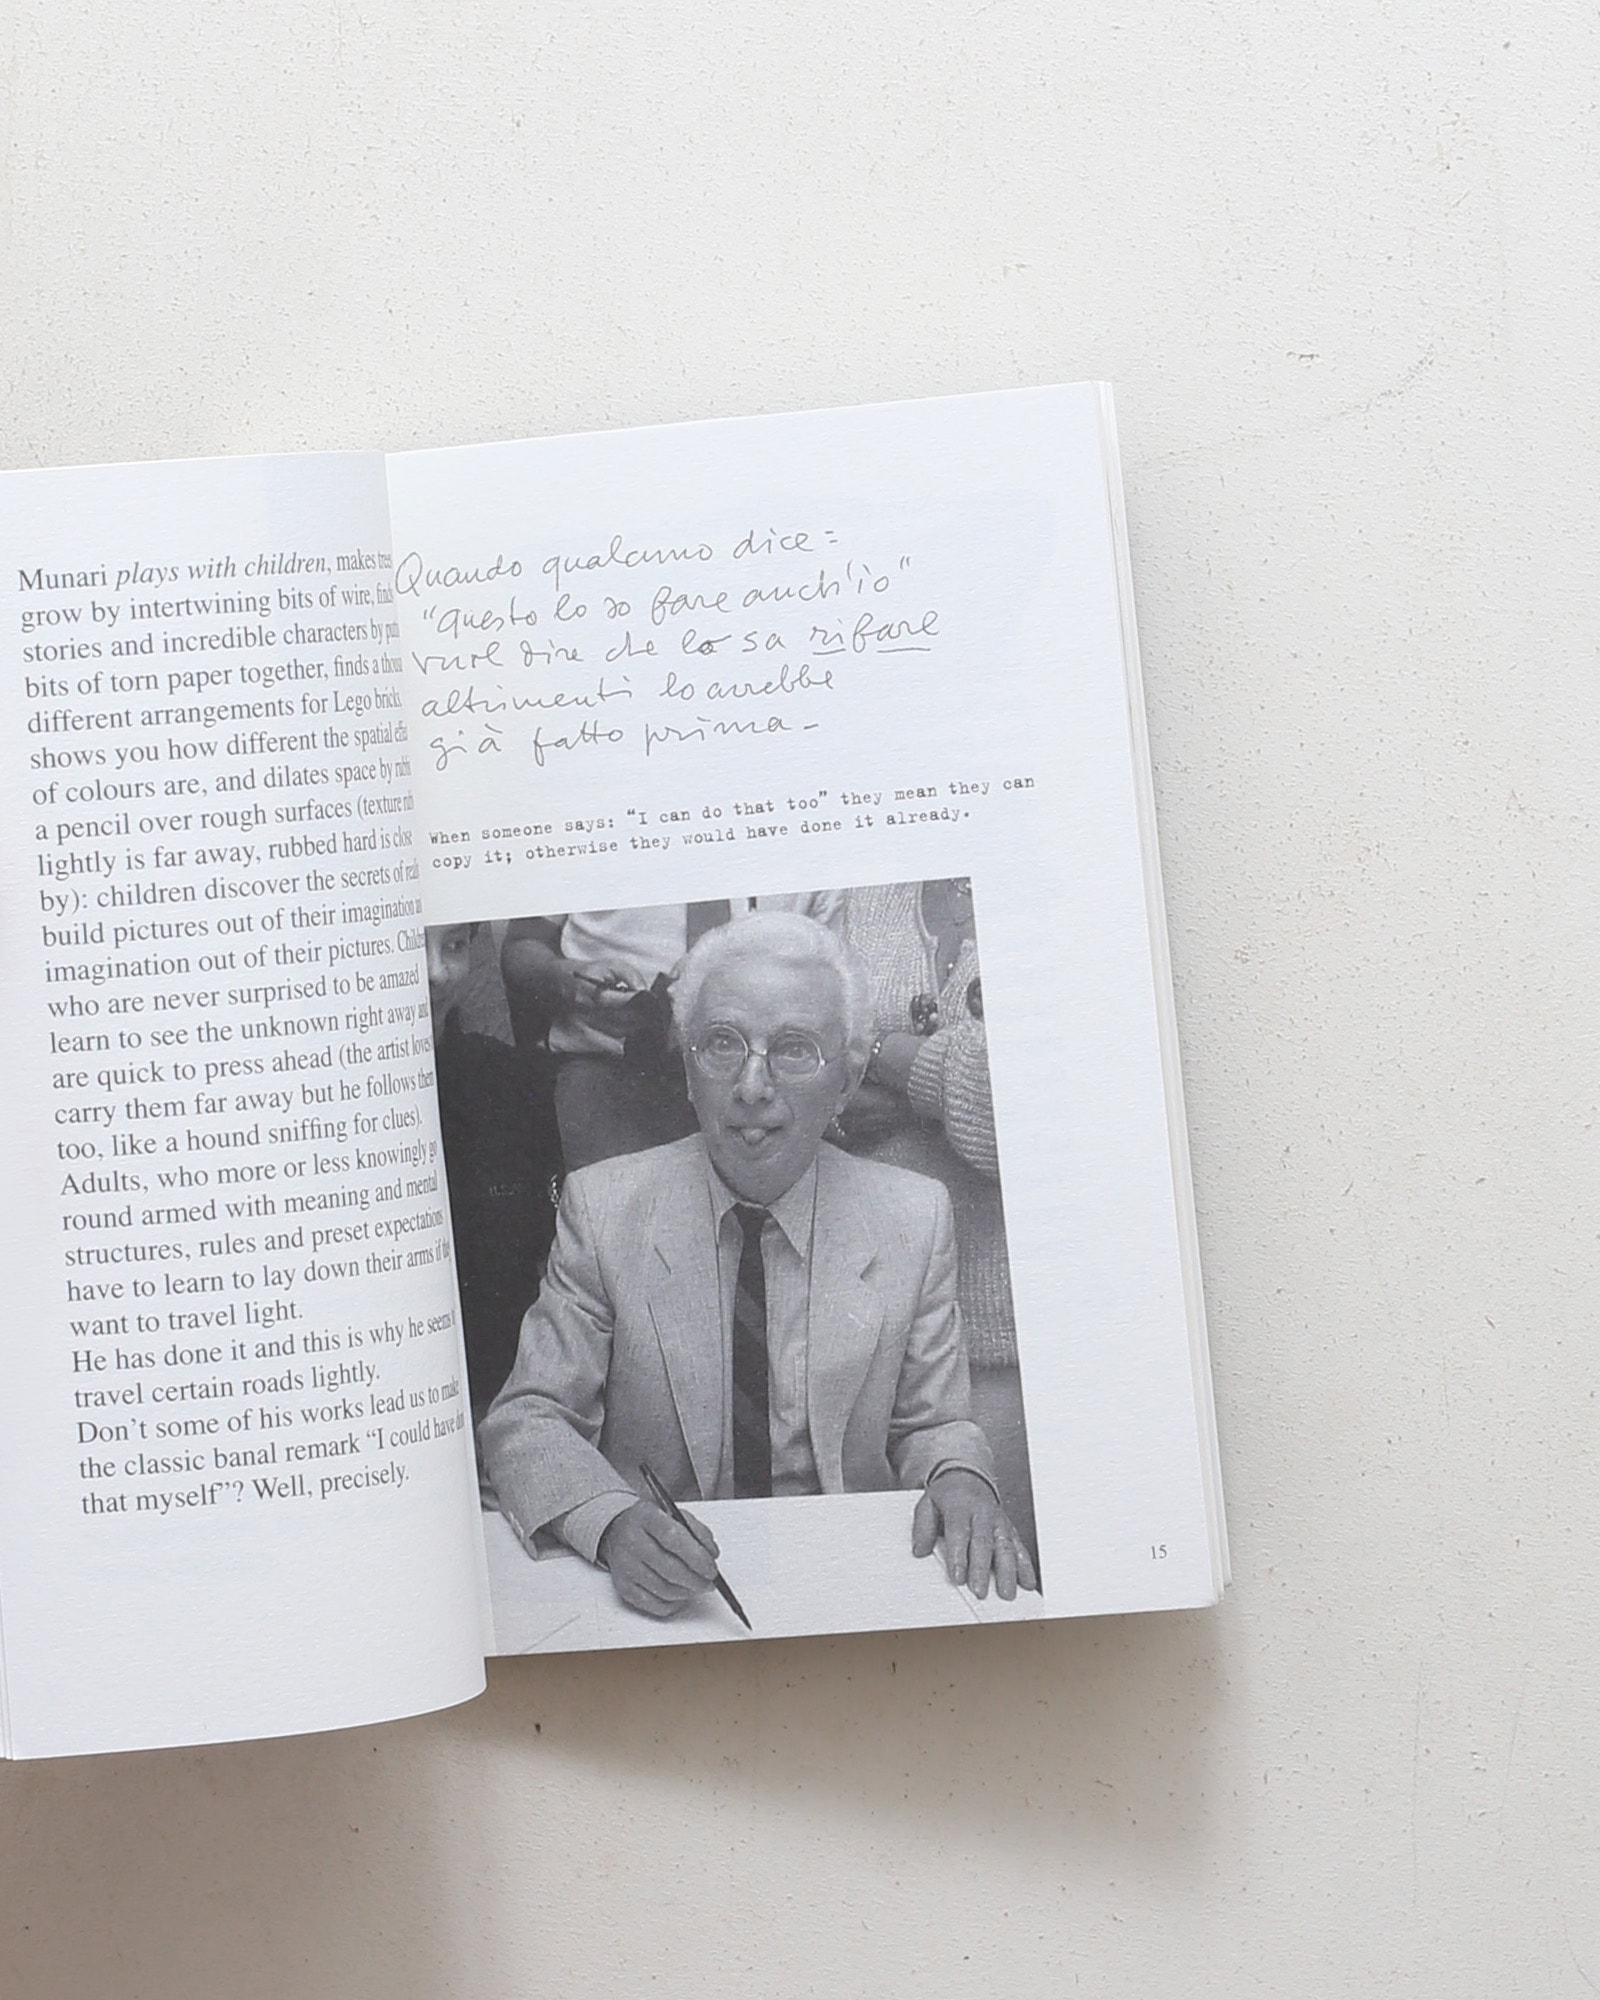 Munari plays with children, makes trees
grow by intertwining bits of wire, finds
stories and incredible characters by
bits of torn paper together, finds a
different arrangements for Lego bricks,
shows you how different the spatial
of colours are, and dilates space by
a pencil over rough surfaces (texture
lightly is far away, rubbed hard is close
by): children discover the secrets of
build pictures out of their imagination
imagination out of their pictures.
who are never surprised to be amazed
learn to see the unknown right away and
are quick to press ahead (the artist loves
carry them far away but he follows them
too, like a hound sniffing for clues).
Adults, who more or less knowingly go
round armed with meaning and mental
structures, rules and preset expectations
have to learn to lay down their arms if
want to travel light.
He has done it and this is why he seems
travel certain roads lightly.
Don't some of his works lead us to make
the classic banal remark “I could have
that myself”? Well, precisely.
Quando qualcuno dice:
“questo lo so fare anch'io”
vuol dire che lo sa rifare
altrimenti lo avrebbe
già fatto prima-
When someone says: “I can do that too” they mean they can
copy it; otherwise they would have done it already.
15